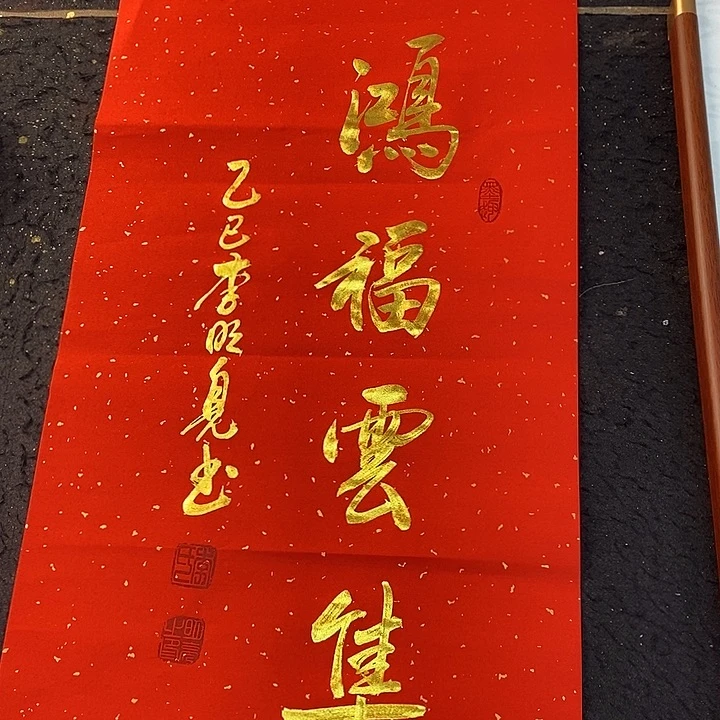 鴻福雲集
乙巳李明見书